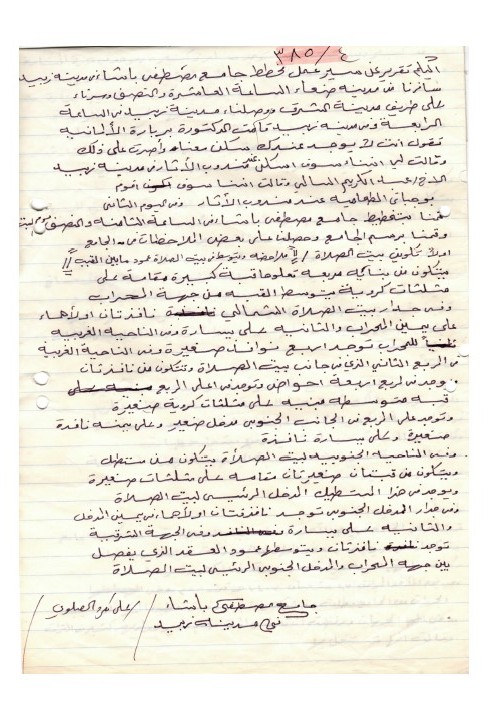 ٣٨٥/٤
اليكم تقرير عن سير عمل مخطط جامع مصطفى باشا في مدينة زبيد
سافرنا من مدينة صنعاء الساعة العاشرة والنصف وسرنا
على طريق مدينة الشرق ووصلنا مدينة زبيد في الساعة
الرابعة وفي مدينة زبيد قامت الدكتورة بزيارة الألمانية
فقول انت لا يوجد عندك سكن معنا وأصرت على ذلك
وقالت لي اننا سوف اسكن عند مندوب الآثار في مدينة زبيد
الاخ/ عبد الكريم وقالت اننا سوف اقوم
بوجباتي عند مندوب الآثار وفي اليوم الثاني
قمنا بتخطيط جامع مصطفى باشا في الساعة الثامنة والنصف يوم
وقمنا برسم الجامع وحصلنا على بعض الملاحظات من الجامع
اولاً يتكون بيت الصلاة // ملاحظه ويتوسط في بيت الصلاة عمود ما بين القبب //
يتكون من بنائه مربعه تعلوها قبة كبيرة مقامة على
مثلثات كروية يتوسط القبه من جهة المحراب
وفي جدار بيت الصلاة الشمالي نافذتان اولاهما
على يمين المحراب والثانيه على يساره وفي الناحيه الغربيه
للمحراب توجد اربع نوافذ صغيرة وفي الناحية الغربية
في الربع الثاني الذي في جانب بيت الصلاة وتتكون من نافذتان
يوجد في اربع اربعة احواض وتوجد في اعلى الربع
قبه متوسطه مبنيه على مثلثات كروية صغيرة
وتوجد على الربع في الجانب الجنوبي مدخل صغير وعلى يمينه نافذة
صغيرة وعلى يساره نافذة
وفي الناحيه الجنوبيه لبيت الصلاة يتكون من مستطيل
ويتكون من قبتان صغيرتان مقامه على مثلثات صغيرة
ويوجد في هذا المستطيل المدخل الرئيسي لبيت الصلاة
وفي جدار المدخل الجنوبي توجد نافذتان اولاهما في يمين المدخل
والثانيه على يساره وفي الجهة الشرقية
توجد نافذتان ويتوسط عمود العقد الذي يفصل
بين جهة المحراب والمدخل الجنوبي الرئيسي لبيت الصلاة
جامع مصطفى باشا
في مدينة زبيد